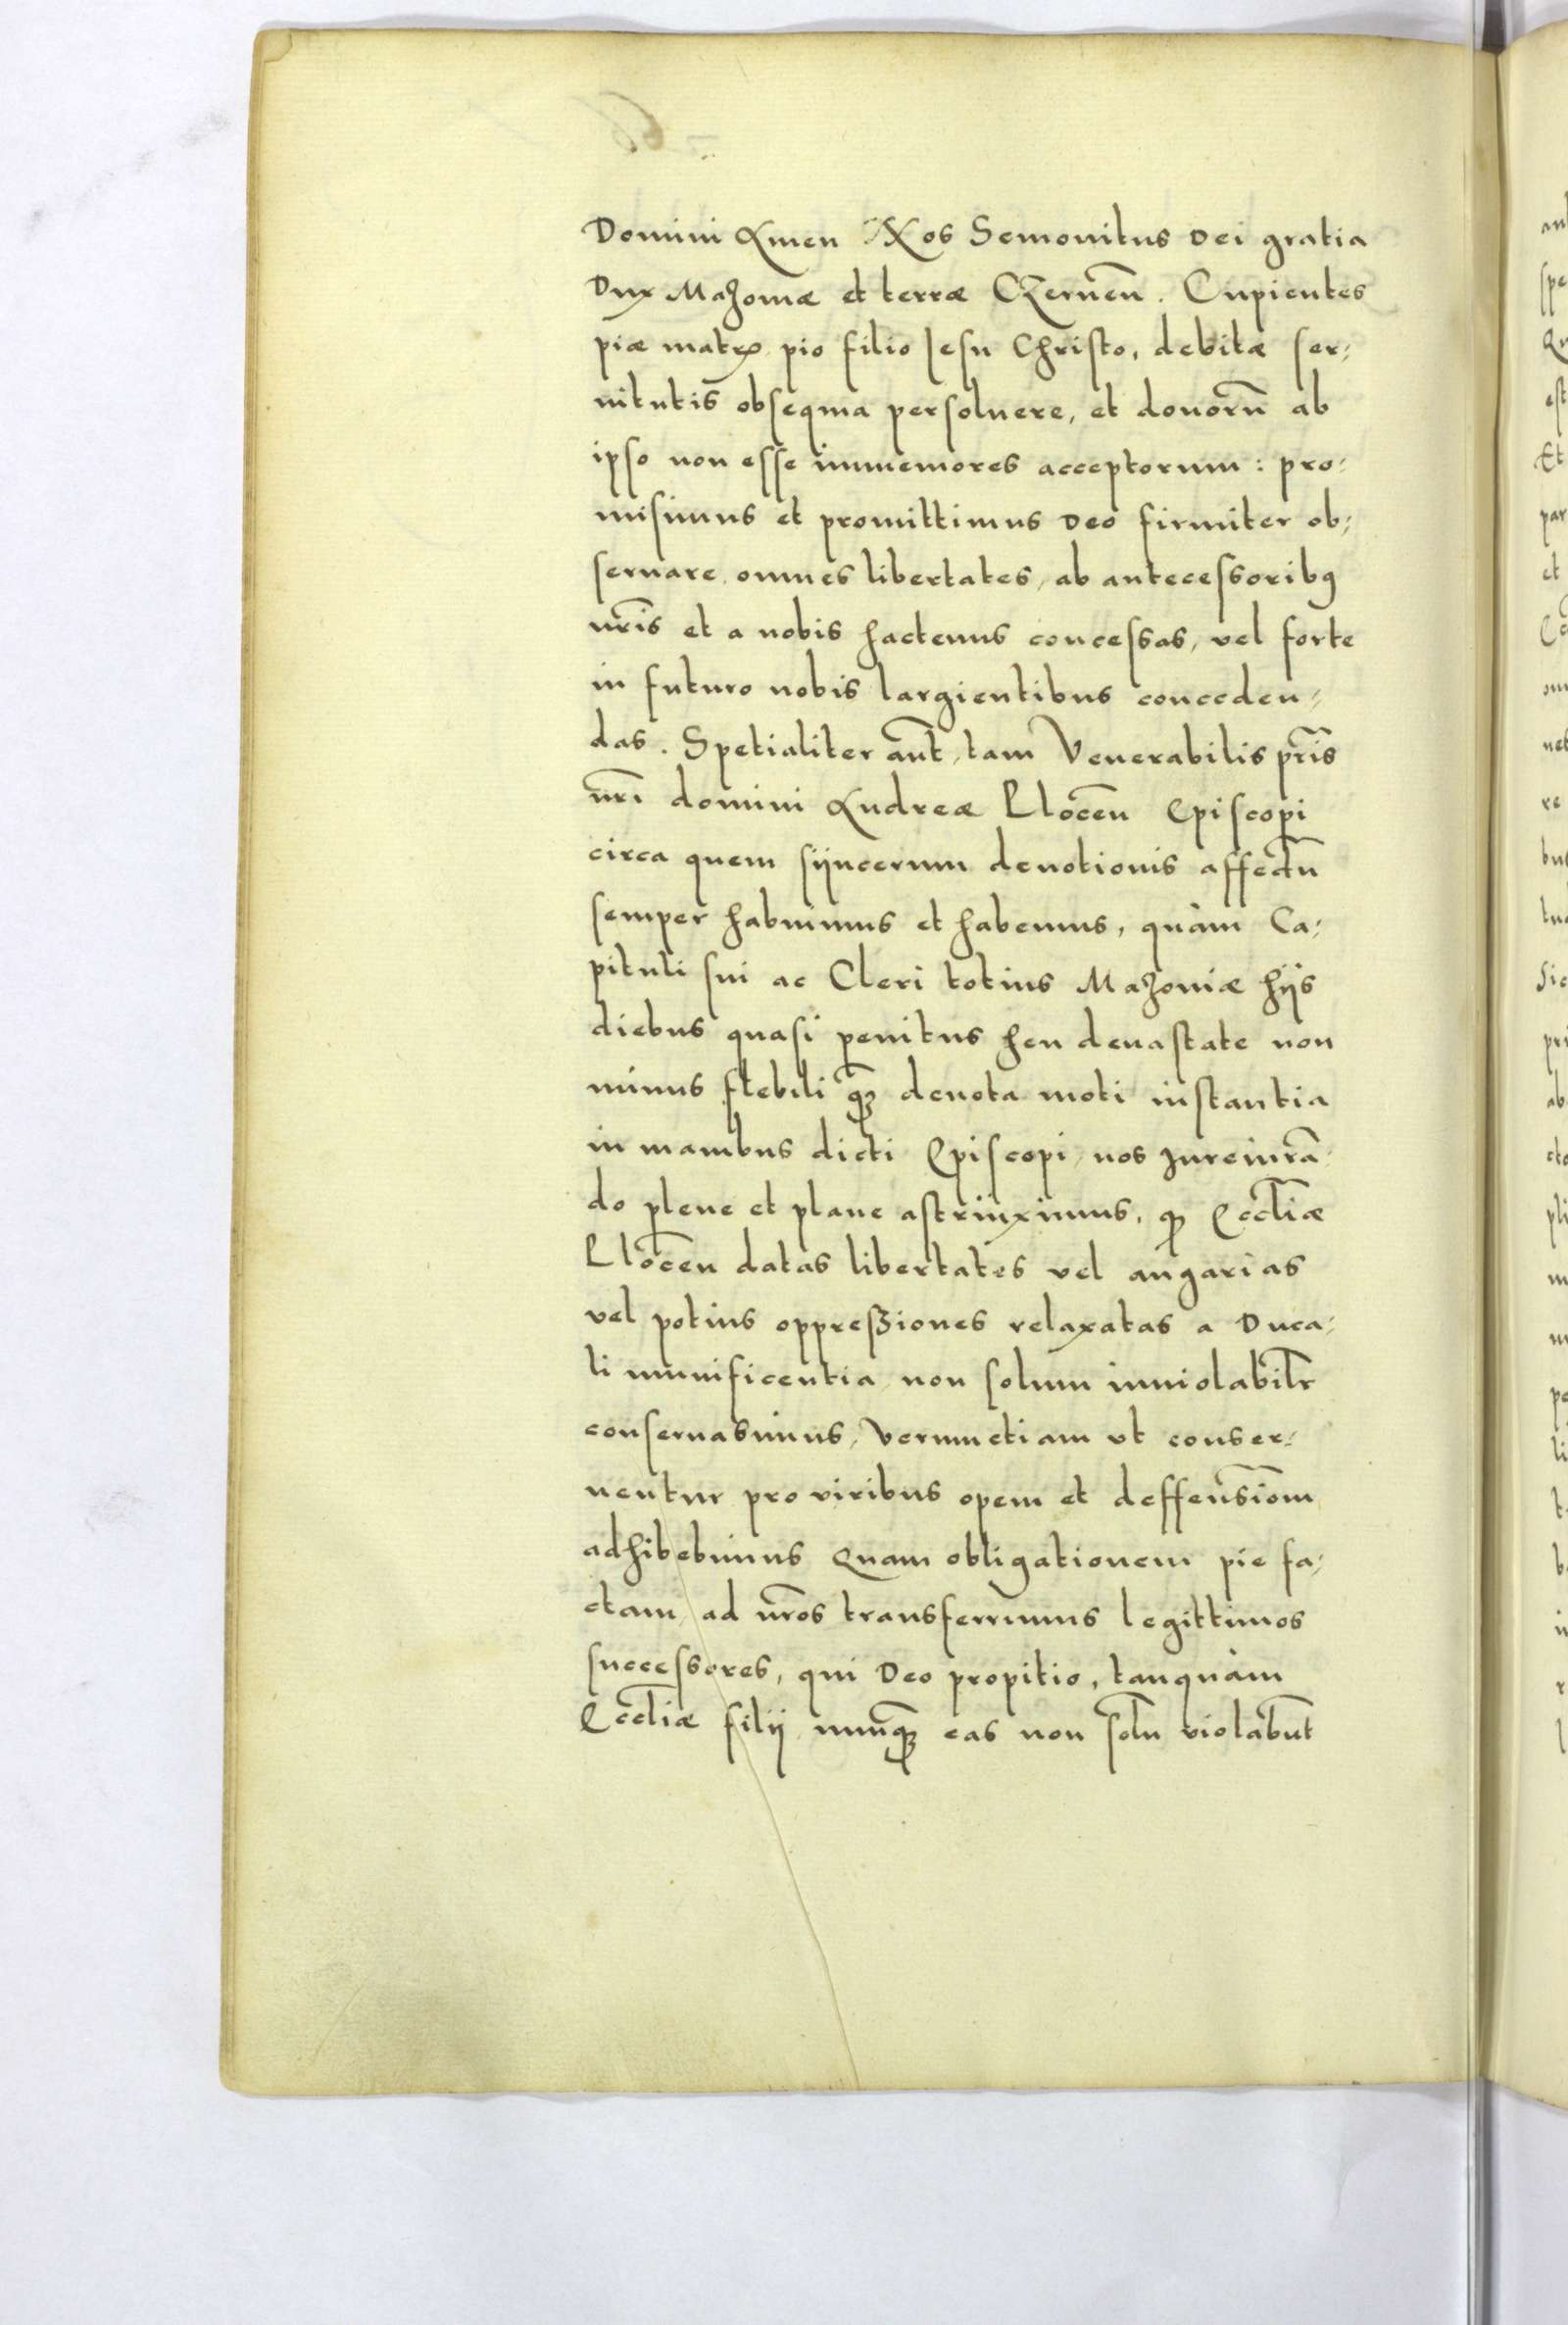 Domini Amen Nos Semouitus Dei gratia
Dux Mazouiæ et terræ CZerneñ. Cupientes
piæ matris pio filio Iesu Christo, debitæ ser-
uitutis obsequia persoluere, et donorũ ab
ipso non esse immemores acceptorum: pro-
misimus et promittimus Deo firmiter ob-
seruare omnes libertates, ab antecessoribꝰ
nr̃is et a nobis hactenus concessas, vel forte
in futuro nobis largientibus conceden-
das. Spetialiter aũt, tam Venerabilis pr̃is
nr̃i domini Andreæ Ploceñ Episcopi
circa quem sijncerum deuotionis affectũ
semper habuimus et habemus, quàm Ca-
pituli sui ac Cleri totius Mazouiæ hijs
diebus quasi penitus heu deuastate non
minus flebili ꝙ̃ deuota moti instantia
in manibus dicti Episcopi, nos Iureiurã-
do plene et plane astrinximus, ꝙ Eccl̃iæ
Ploceñ datas libertates vel angarias
vel potius oppreßiones relaxatas a Duca-
li munificentia, non solum inuiolabilr̃
conseruabimus, Verumetiam vt conser-
uentur pro viribus opem et deffensiõm
adhibebimus Quam obligationem pie fa-
ctam, ad nr̃os transferrimus legittimos
successores, qui Deo propitio, tanquàm
Eccl̃iæ filij nunꝙ̃ eas non solũ violabũt